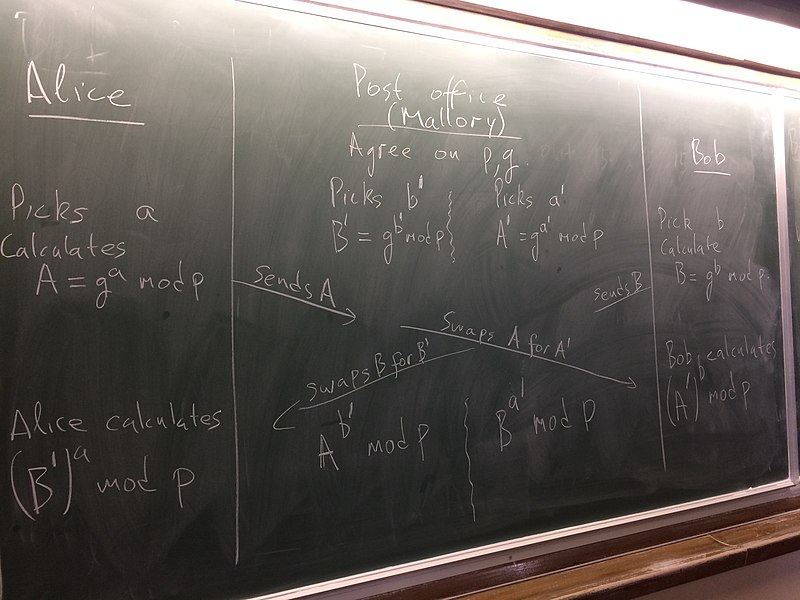 Alice
Picks a
Calculates
A = g^a mod p
Alice calculates
(B')^a mod p
Post office
(Mallory)
Agree on p,g.
Picks b'
B' = g^b' mod p
Picks a'
A' = g^a' mod p
sends A
sends B
Swaps A for A'
swaps B for B'
A^b' mod p
B^a' mod p
Bob
Pick b
Calculate
B = g^b mod p.
Bob calculates
(A')^b mod p